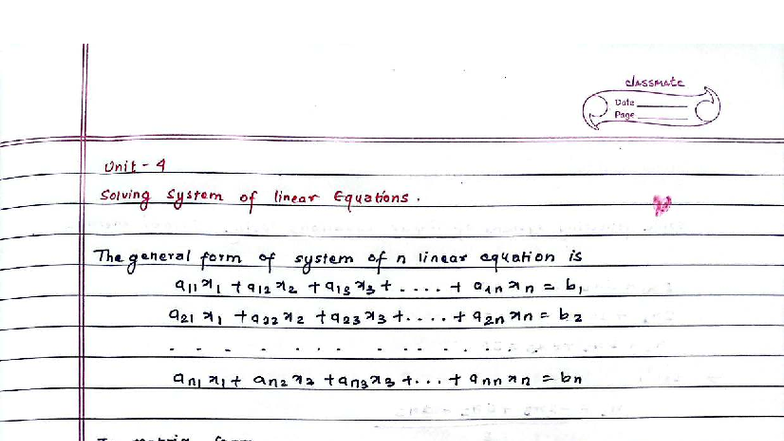 classmate
Date
Page
Unit - 4
Solving System of linear Equations.
The general form of system of n linear equation is
a11x1 + a12x2 + a13x3 + .... + a1nxn = b1
a21x1 + a22x2 + a23x3 + .... + a2nxn = b2
. . . . . . . . . . . . . .
an1x1 + an2x2 + an3x3 + ... + annxn = bn